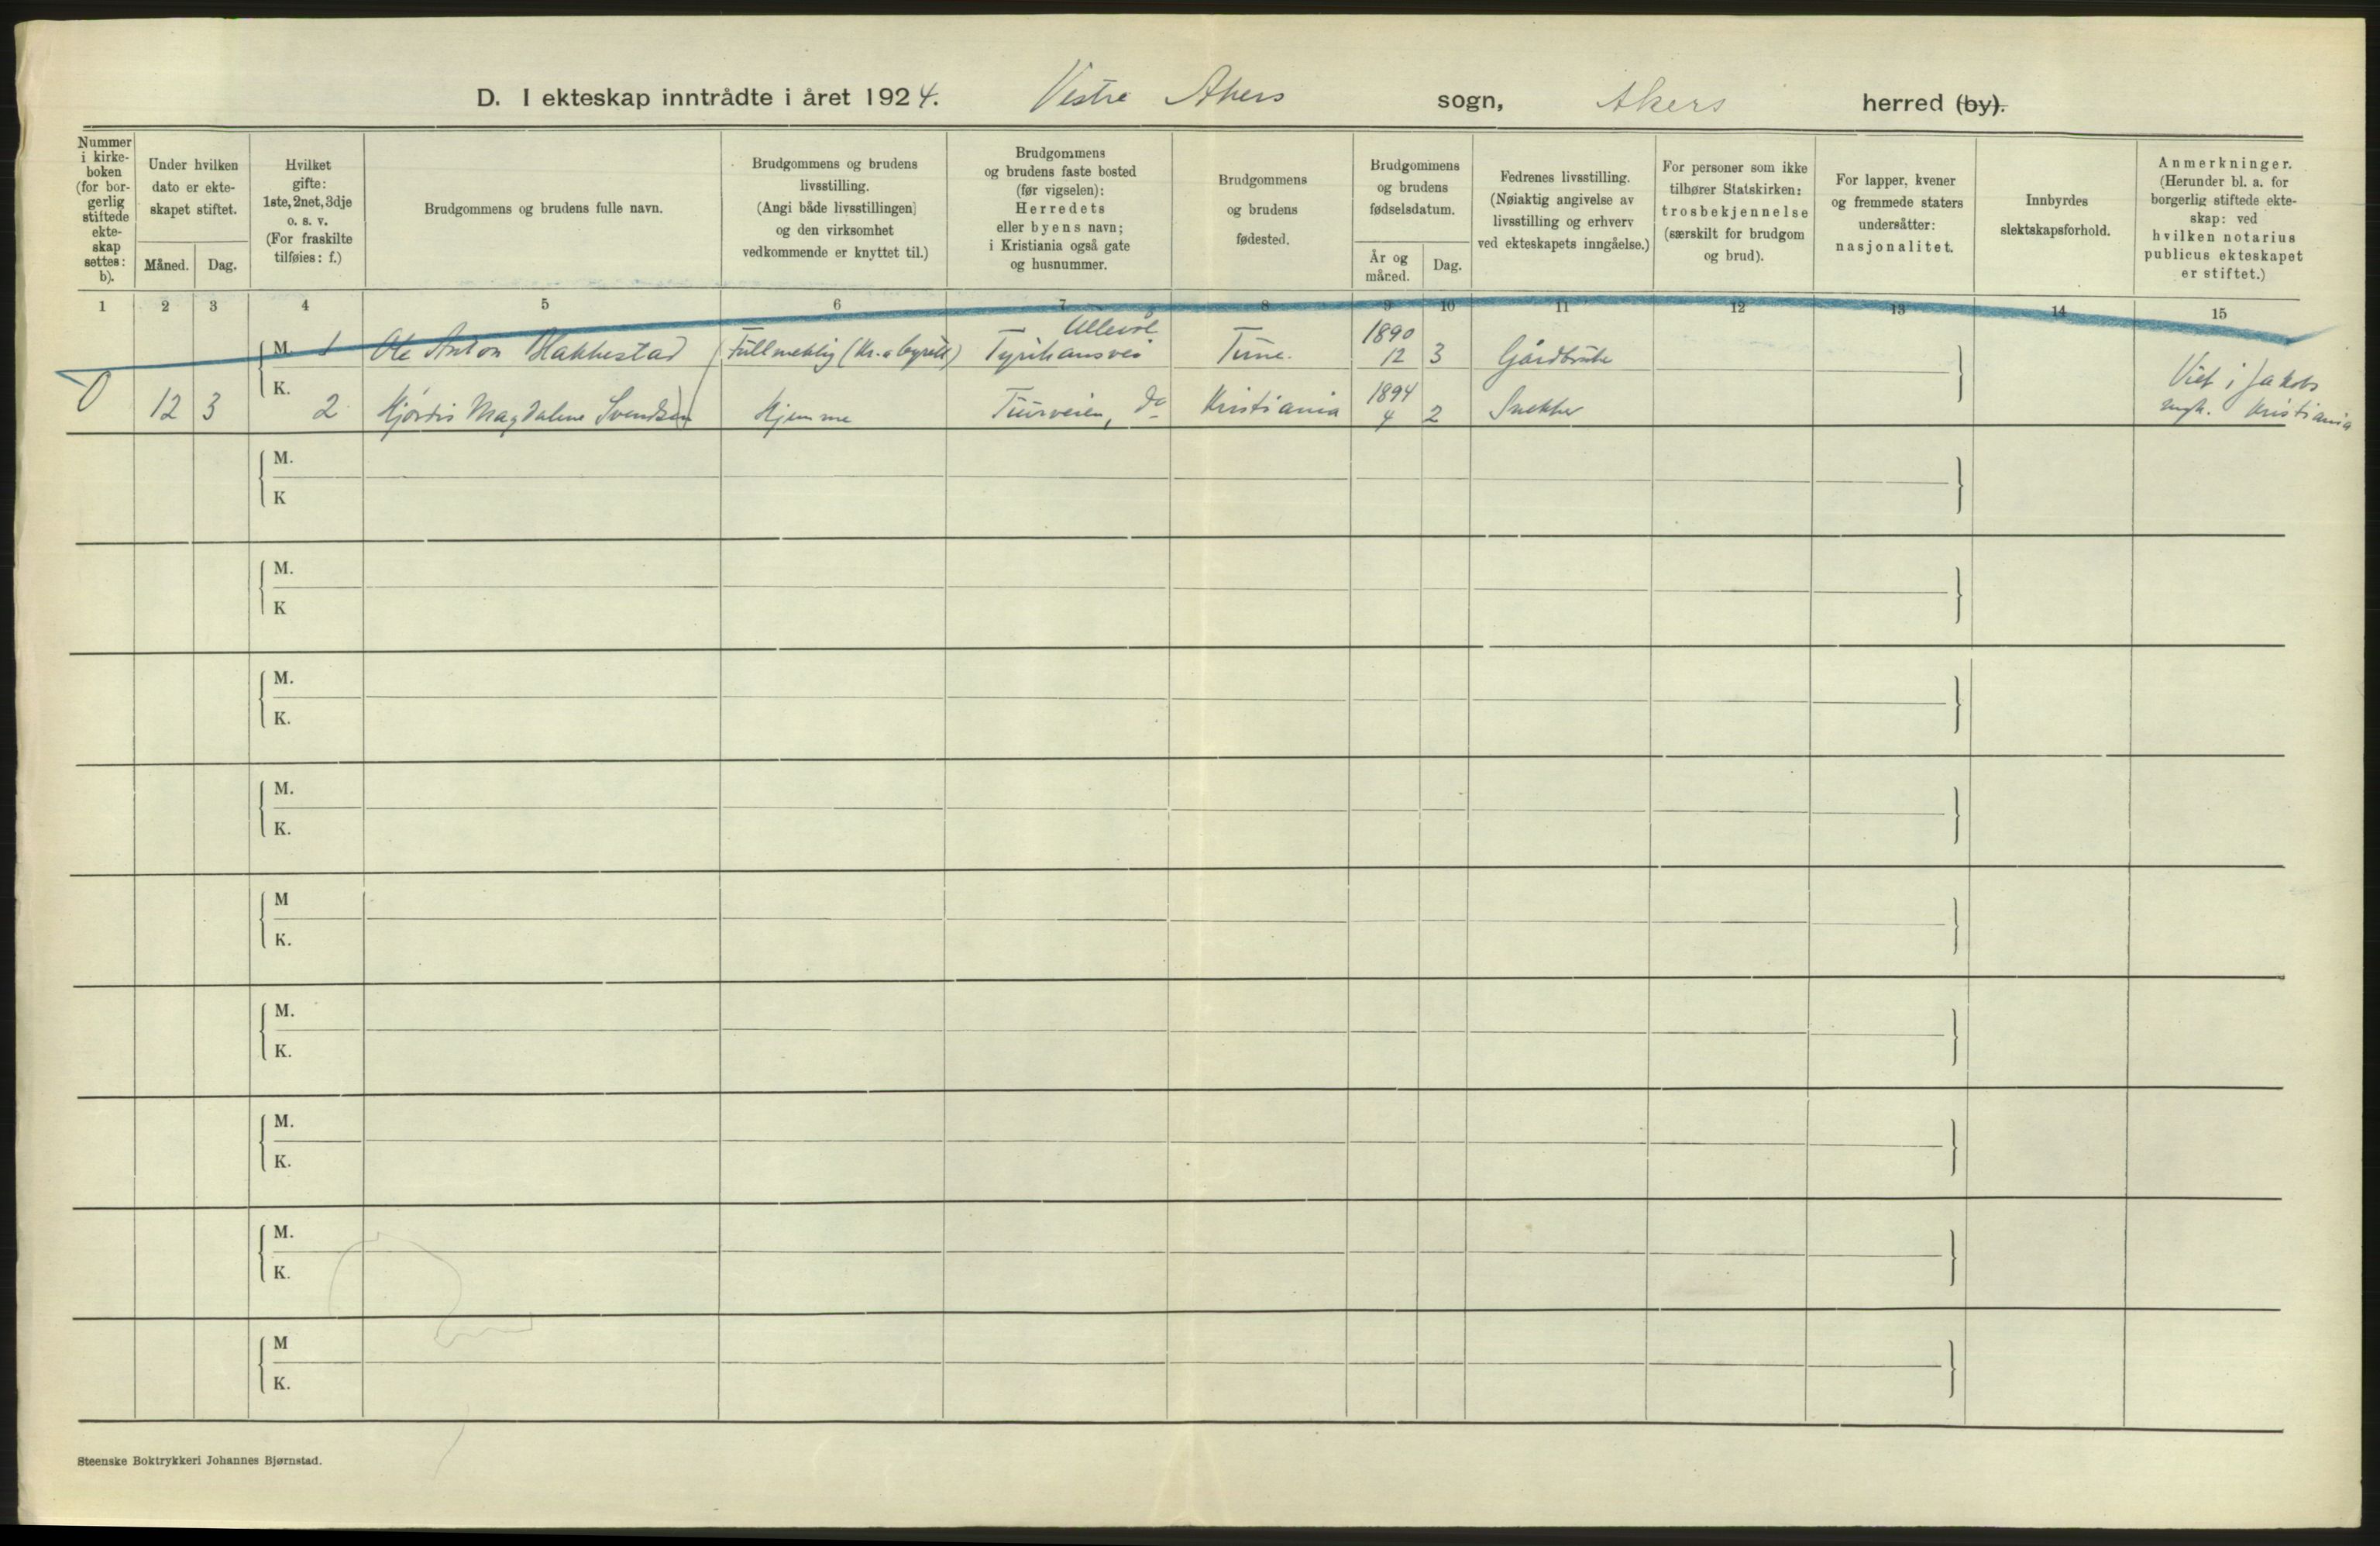 D. I ekteskap inntrådte i året 1924. Vestre Akers sogn, Akers herred (by).
Nummer
i kirke-
boken
(for bor-
gerlig
stiftede
ekte-
skap
settes:
b).
Under hvilken
dato er ekte-
skapet stiftet.
Måned. Dag.
Hvilket
gifte:
1ste, 2net, 3dje
o. s. v.
(For fraskilte
tilføies: f.)
Brudgommens og brudens fulle navn.
Brudgommens og brudens
livsstilling.
(Angi både livsstillingen
og den virksomhet
vedkommende er knyttet til.)
Brudgommens
og brudens faste bosted
(før vigselen):
Herredets
eller byens navn;
i Kristiania også gate
og husnummer.
Brudgommens
og brudens
fødested.
Brudgommens
og brudens
fødselsdatum.
År og
måned.
Dag.
Fedrenes livsstilling.
(Nøiaktig angivelse av
livsstilling og erhverv
ved ekteskapets inngåelse.)
For personer som ikke
tilhører Statskirken:
trosbekjennelse
(særskilt for brudgom
og brud).
For lapper, kvener
og fremmede staters
undersåtter:
nasjonalitet.
Innbyrdes
slektskapsforhold.
Anmerkninger.
(Herunder bl. a. for
borgerlig stiftede ekte-
skap: ved
hvilken notarius
publicus ekteskapet
er stiftet.)
1 2 3 4 5 6 7 8 9 10 11 12 13 14 15
Ullevål 1890
M. 1 Ole Anton Hakkestad Fullmektig (Kr.a byrett) Tyrihansvei Tune. 12 3 Gårdbruker
0 12 3 K. 2 Hjørdis Magdalene Svendsen Hjemme Tuirveien, do Kristiania 1894 4 2 Snekker
Viet i Jakobs
mgh. Kristiania
M.
K
M.
K
M.
K.
M.
K.
M
K.
M.
K.
M.
K.
M.
K.
M
K.
Steenske Boktrykkeri Johannes Bjørnstad.